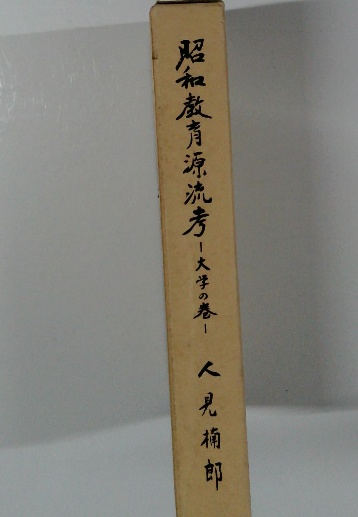 昭和教育源流考
―大学の巻―
人見楠郎